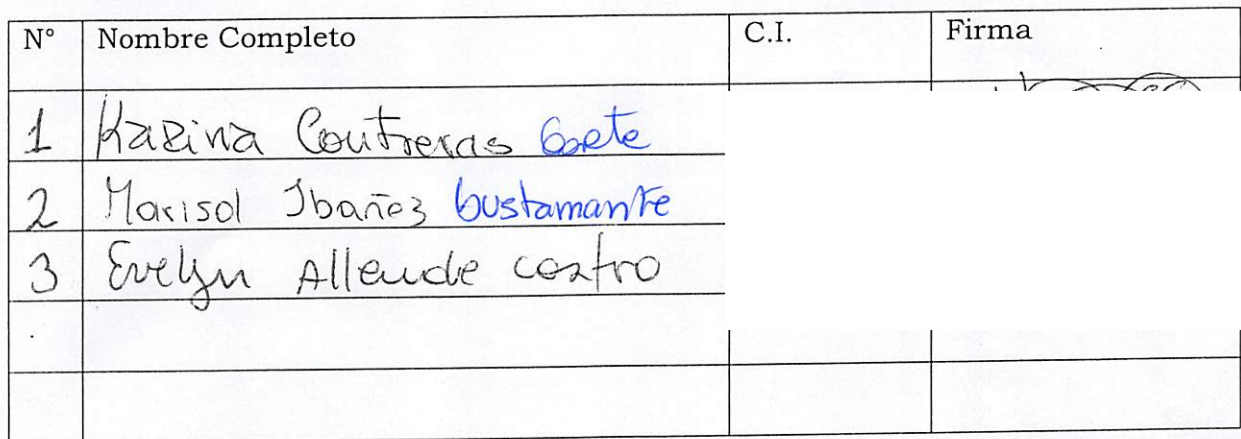 N° Nombre Completo C.I. Firma
1 Karina Contreras
2 Marisol Ibañez bustamante
3 Evelyn Allende castro